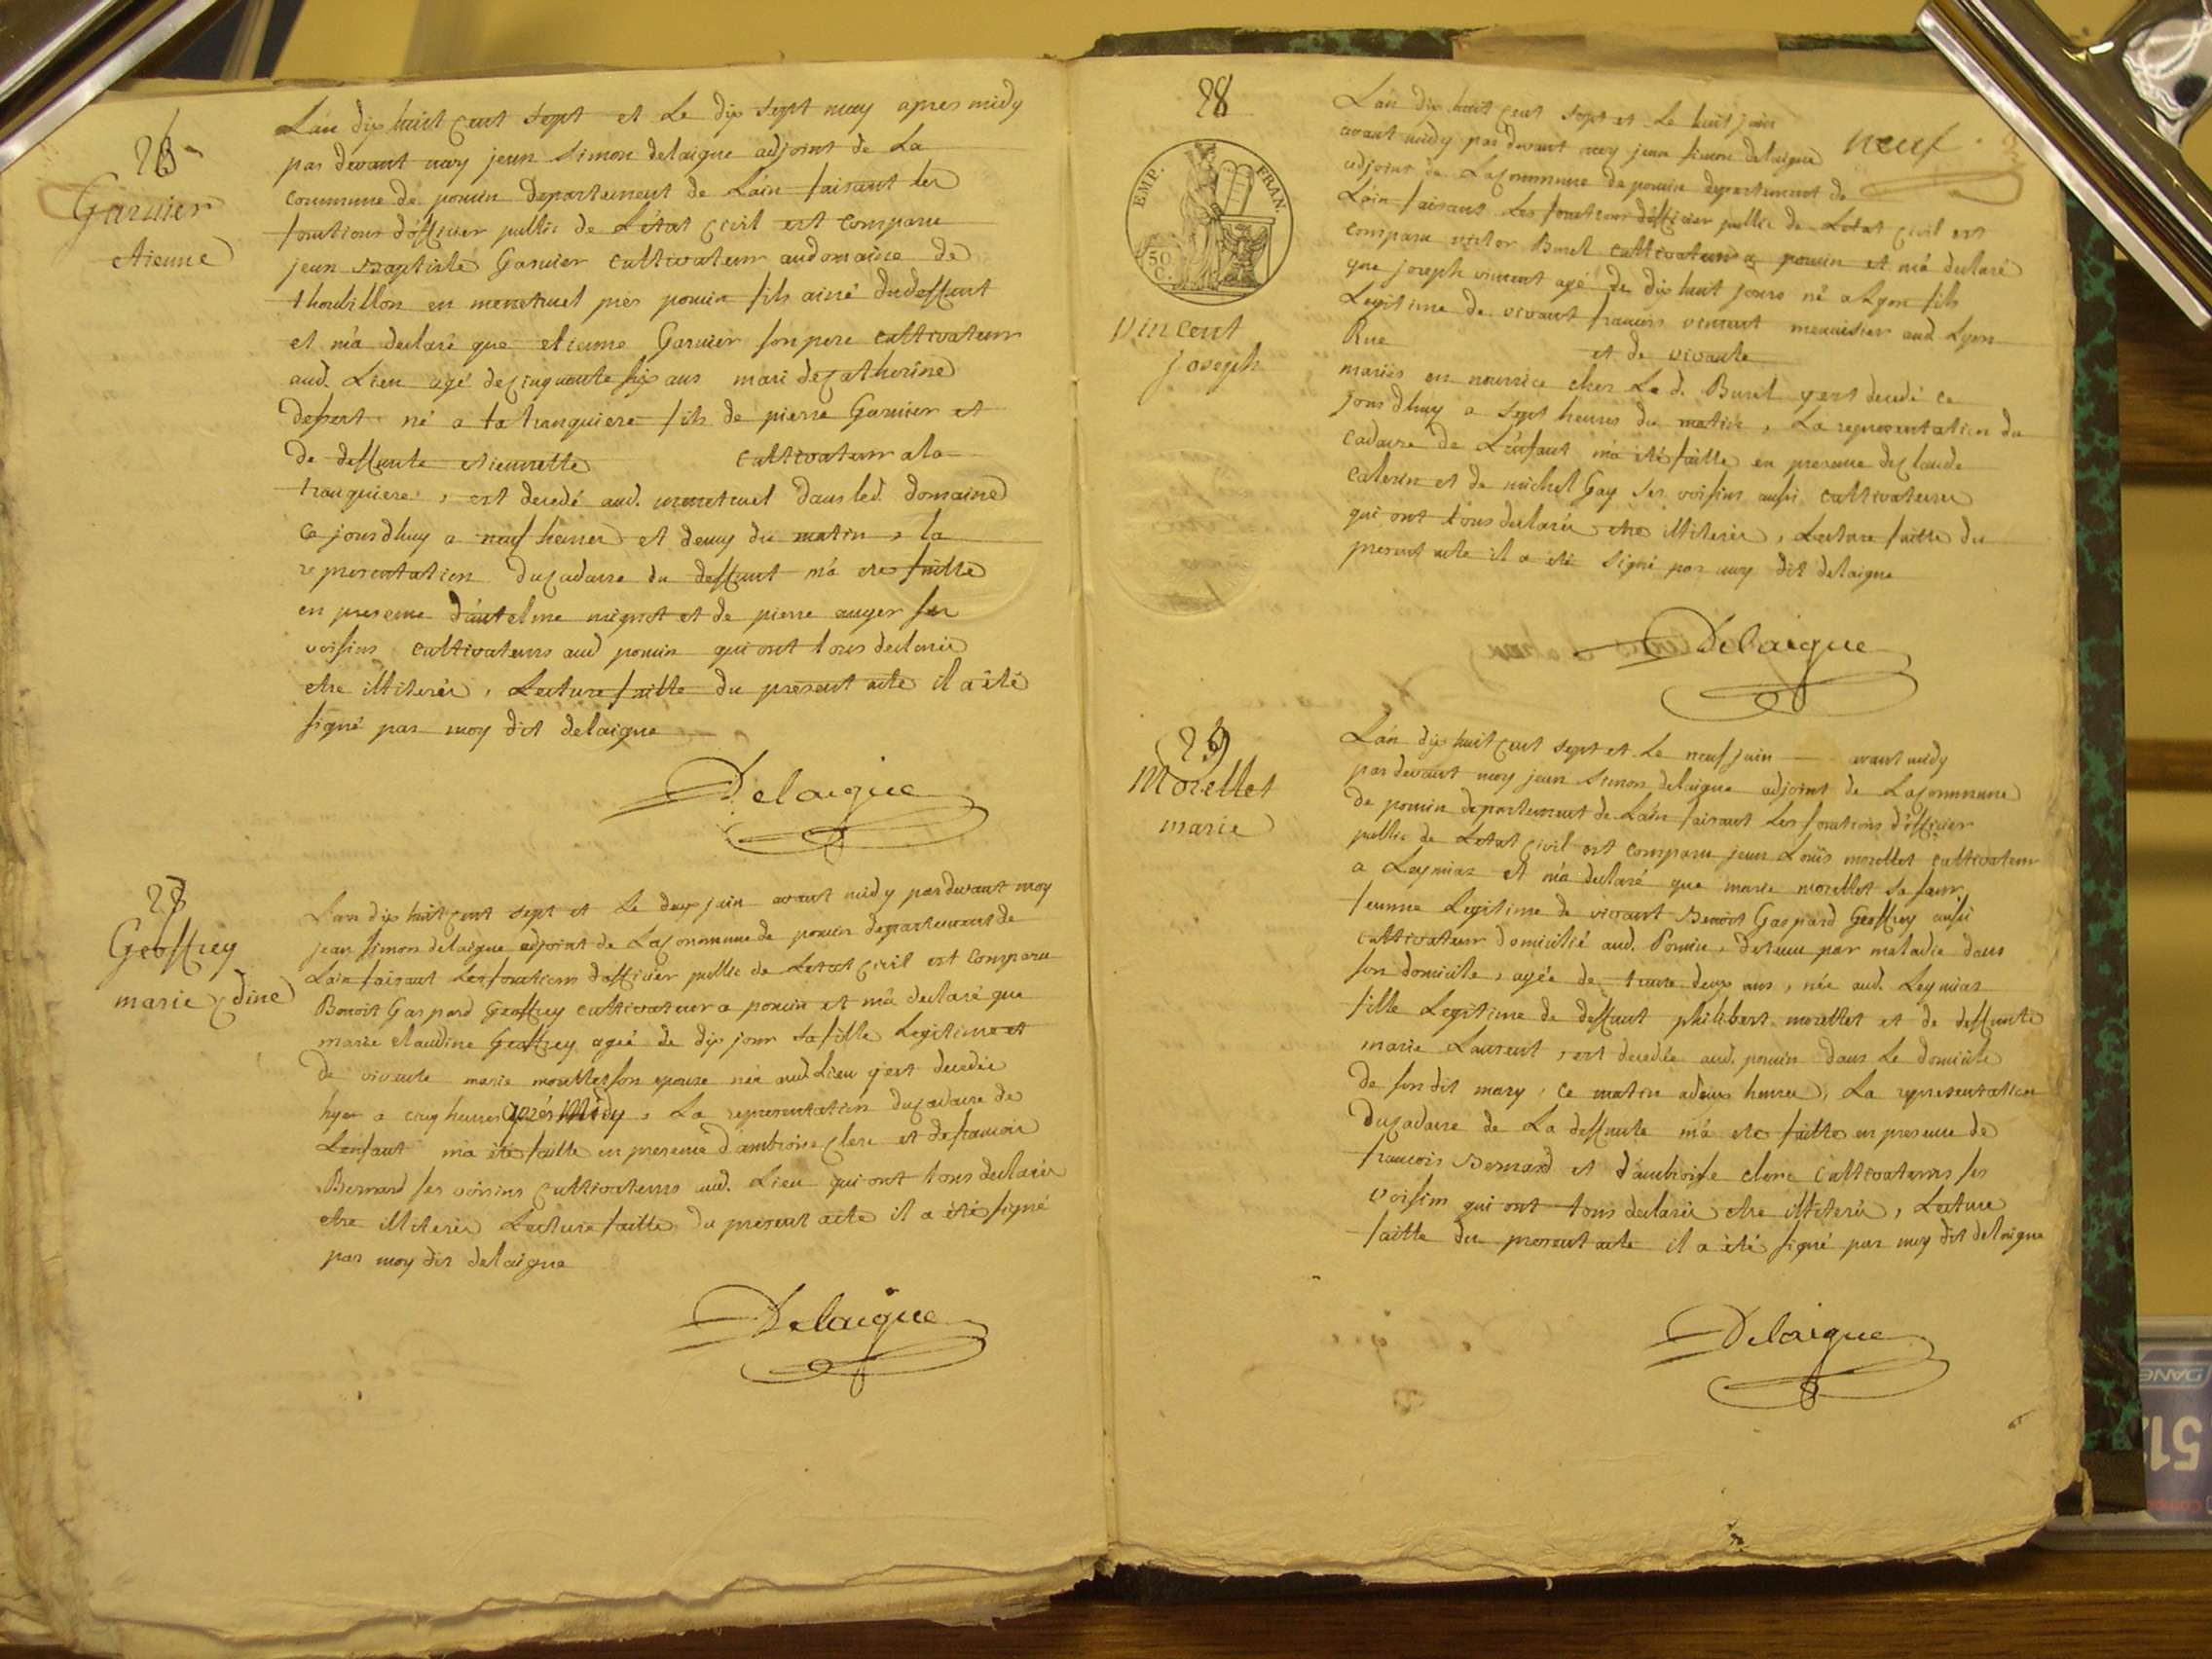 26
Garnier
etienne
L'an dix huit cent sept et le dix sept may apres midy
par devant moy jean simon delaigne adjoint de La
commune de pouin departement de L'ain faisant les
fonctions d'officier public de L'état civil est comparu
jean Baptiste Garnier cultivateur au domaine de
en menetruel près pouin fils ainé du deffunt
et m'a declaré que etienne Garnier son pere cultivateur
aud. Lieu agé de cinquante six ans mari de catherine
dessert né a la tranquiere fils de pierre Garnier et
de deffunte etiennette cultivateur a la
tranquiere, est decedé aud. menetruel dans led. domaine
ce jourdhuy a neuf heures et demy du matin, la
representation du cadavre du deffunt m'a ete faitte
en presence d'antelme mignot et de pierre auger ses
voisins cultivateurs aud pouin qui ont tous declarés
etre illiterés, Lecture faitte du present acte il a été
signé par moy dit delaigue
Delaigue
27
Geoffrey
marie dine
L'an dix huit cent sept et le deux juin avant midy par devant moy
jean simon delaigue adjoint de La commune de pouin departement de
L'ain faisant les fonctions d'officier public de L'etat civil est comparu
Benoit Gaspard Geoffrey cultivateur a pouin et m'a declaré que
marie claudine Geoffrey ageé de dix jour sa fille Legitime et
de vivante marie morellet son epouse née aud. Lieu y est decedée
hyer a cinq heures après Midy, La representation du cadavre de
L'enfant m'a été faitte en presence d'ambroise clerc et de francois
Bernard ses voisins cultivateurs aud. Lieu qui ont tous declarés
etre illiterés Lecture faitte du present acte il a été signé
par moy dit delaigue
Delaigue
28
neuf
EMP. FRAN.
50
C.
Vincent
joseph
L'an dix huit cent sept et le huit juin
avant midy par devant moy jean simon delaigue
adjoint de La commune de pouin departement de
L'ain faisant les fonctions d'officier public de L'etat civil est
comparu victor Buret cultivateur a pouin et m'a declaré
que joseph vincent agé de dix huit jours né a Lyon fils
Legitime de vivant francois vincent menuisier aud. Lyon
Rue et de vivante
mariés en nourrice chez Le d. Buret y est decedé ce
jourdhuy a sept heures du matin, La representation du
cadavre de L'enfant m'a été faitte en presence de claude
caterin et de michel Gay ses voisins aussi cultivateurs
qui ont tous declarés etre illiterés, Lecture faitte du
present acte il a été signé par moy dit delaigue
Delaigue
29
Morellet
marie
L'an dix huit cent sept et le neuf juin avant midy
par devant moy jean simon delaigue adjoint de La commune
de pouin departement de L'ain faisant les fonctions d'officier
public de L'etat civil est comparu jean Louis morellet cultivateur
a Leymiaz et m'a declaré que marie morellet sa sœur,
femme Legitime de vivant Benoit Gaspard Geoffrey aussi
cultivateur domicilié aud. Pouin, detenue par maladie dans
son domicile, agée de trente deux ans, née aud. Leymiaz
fille Legitime de deffunt philibert morellet et de deffunte
marie Laurent, est decedée aud. pouin dans Le domicile
de son dit mary, ce matin a deux heures, La representation
du cadavre de La deffunte m'a ete faitte en presence de
francois Bernard et d'ambroise clerc cultivateurs ses
voisins qui ont tous declarés etre illiterés, Lecture
faitte du present acte il a été signé par moy dit delaigue
Delaigue